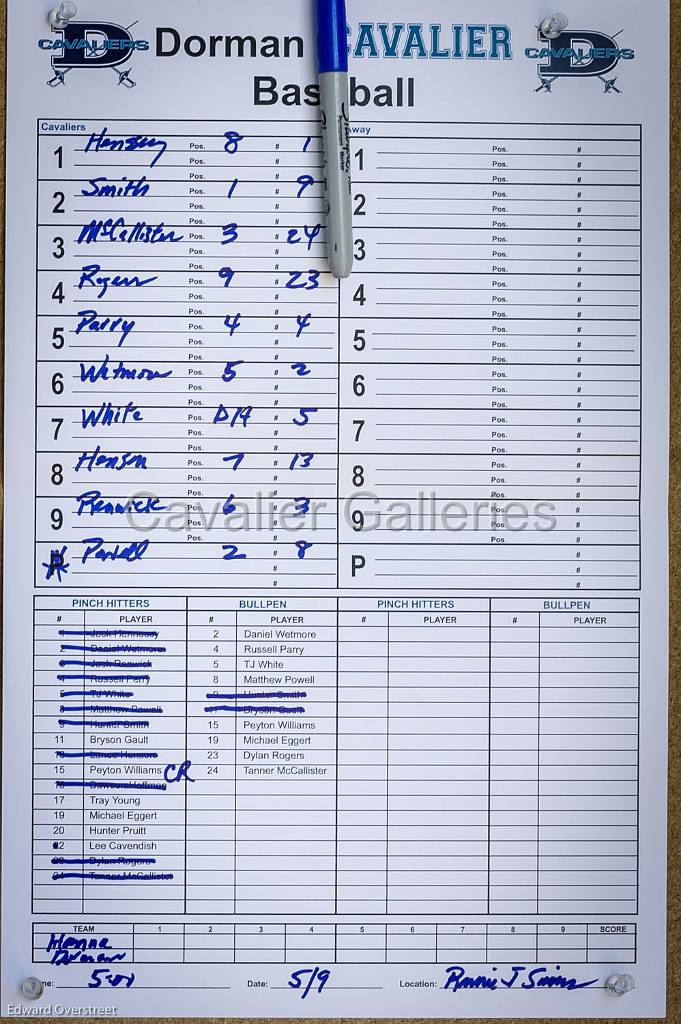 D CAVALIERS Dorman CAVALIER D CAVALIERS
Baseball
Cavaliers
1 Hennessy Pos. 8 # 1
2 Smith Pos. 1 # 9
3 McCallister Pos. 3 # 24
4 Rogers Pos. 9 # 23
5 Parry Pos. 4 # 4
6 Wetmore Pos. 5 # 2
7 White Pos. DH # 5
8 Henson Pos. 7 # 13
9 Renwick Pos. 6 # 3
P Powell 2 # 8
1 Pos. #
2 Pos. #
3 Pos. #
4 Pos. #
5 Pos. #
6 Pos. #
7 Pos. #
8 Pos. #
9 Pos. #
P #
Cavalier Galleries
PINCH HITTERS BULLPEN PINCH HITTERS BULLPEN
# PLAYER # PLAYER # PLAYER # PLAYER
1 Jack Hennessy 2 Daniel Wetmore
2 Daniel Wetmore 4 Russell Parry
3 Jack Renwick 5 TJ White
4 Russell Parry 8 Matthew Powell
5 TJ White 9 Hunter Smith
8 Matthew Powell 11 Bryson Gault
9 Hunter Smith 15 Peyton Williams
11 Bryson Gault 19 Michael Eggert
13 Lance Henson 23 Dylan Rogers
15 Peyton Williams CR 24 Tanner McCallister
16 Dawson Hoffman
17 Tray Young
19 Michael Eggert
20 Hunter Pruitt
22 Lee Cavendish
23 Dylan Rogers
24 Tanner McCallister
TEAM 1 2 3 4 5 6 7 8 9 SCORE
Hanna
Dorman
me: 5:00 Date: 5/9 Location:
Edward Overstreet